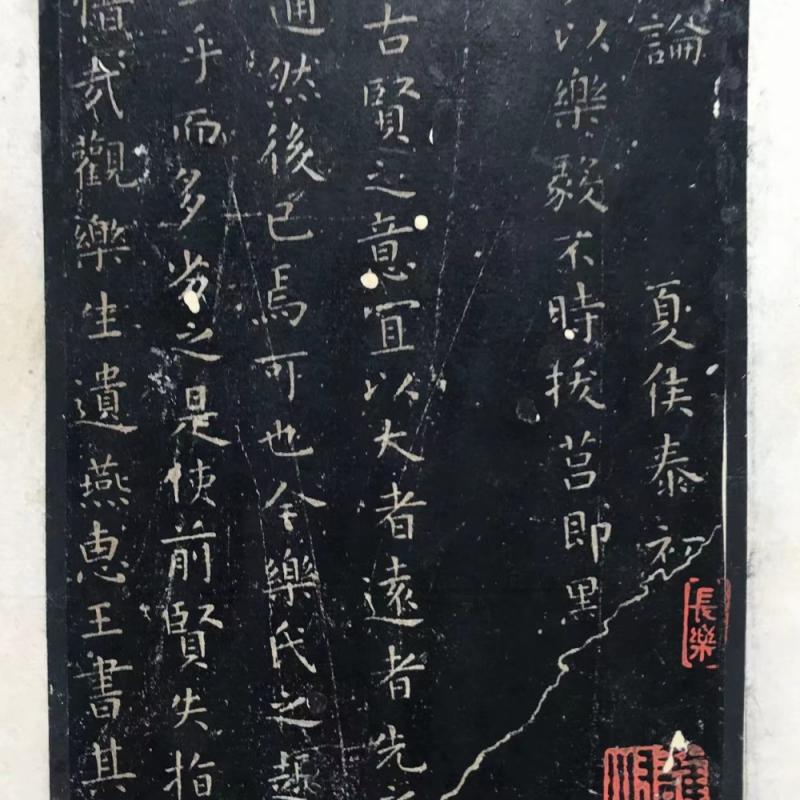 論 夏侯泰初
以樂毅不時拔莒即墨
古賢之意宜以大者遠者先之
通然後已焉可也今樂氏之趣
乎而多劣之是使前賢失指
惜哉觀樂生遺燕惠王書其
長樂